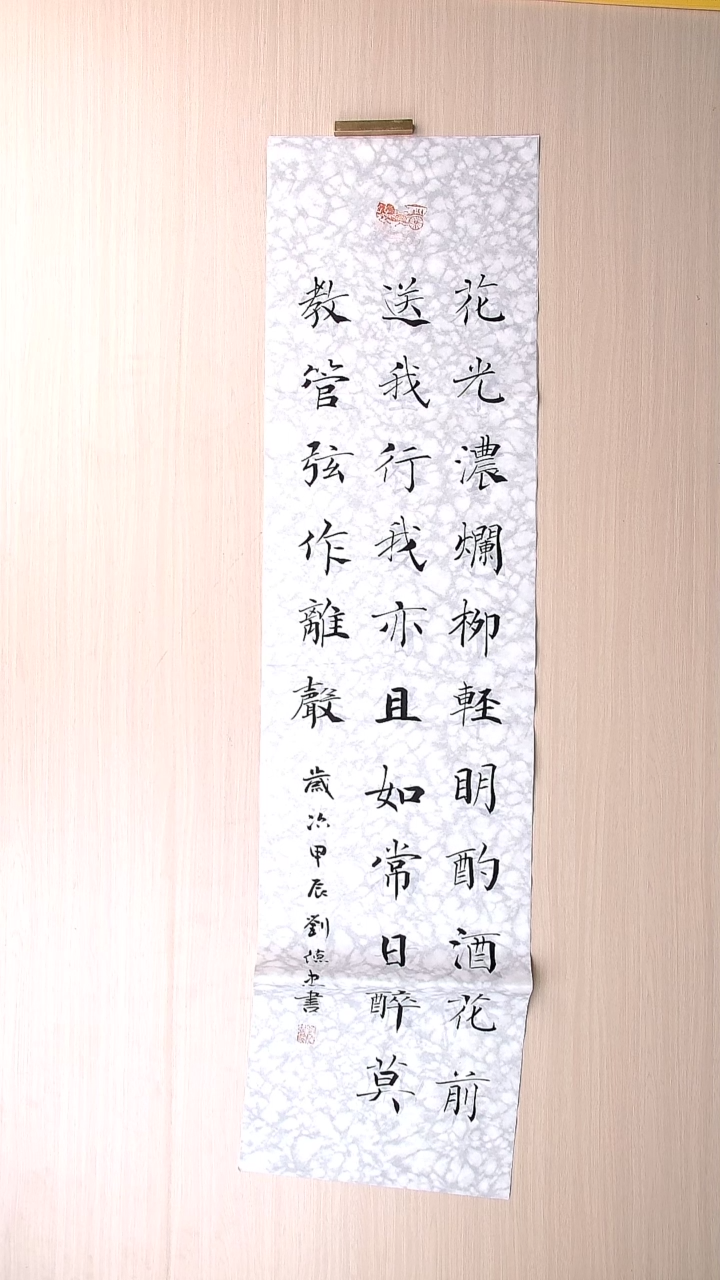 花光濃爛柳軽明酌酒花前
送我行我亦且如常日醉莫
教管弦作離聲
歲次甲辰劉德书書